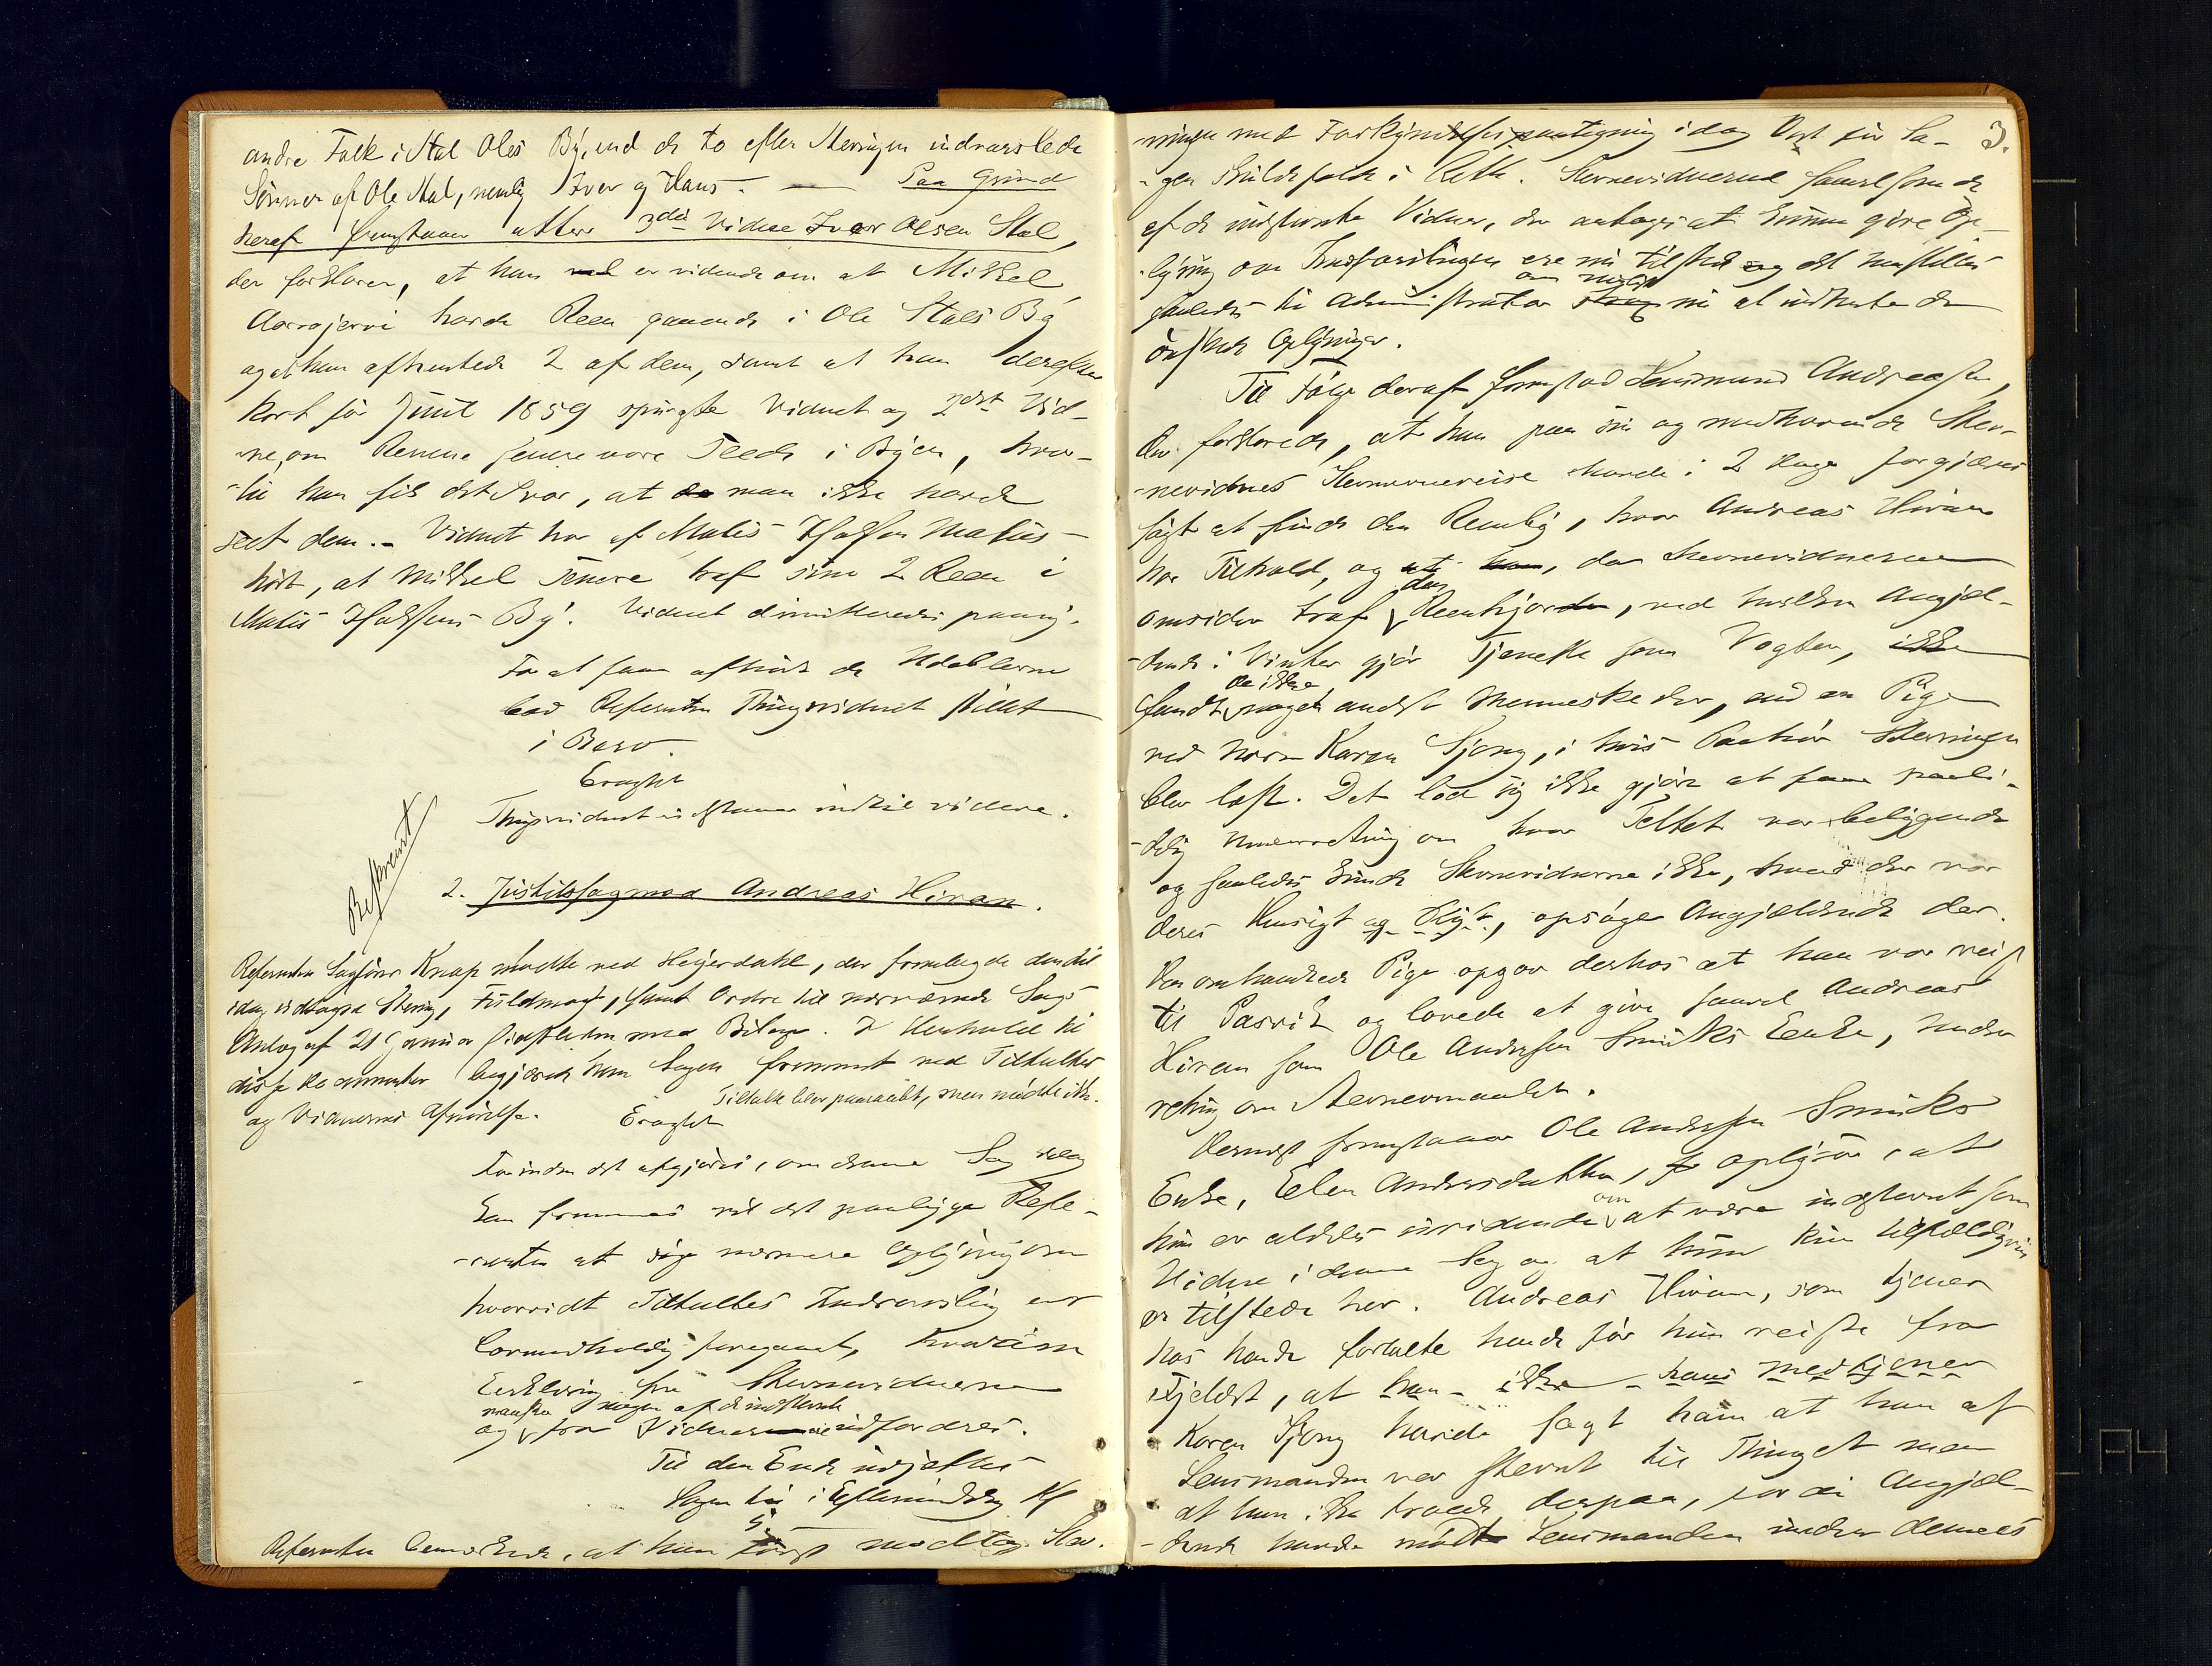 andre Folk i Stal Oles By, end de to efter Stevningen indvarslede
Sønner af Ole Stal, nemlig Iver og Hans. — Paa Grund
heraf fremstaaer atter 3die Vidne Iver Olsen Stal,
der forklarer, at han er vidende om at Mikkel
Aarojervi havde Reen gaaende i Ole Stals By
og at han afhentede 2 af dem, samt at han derefter
kort før Juul 1859 spurgte Vidnet og 2det Vid-
ne, om Renene senere vare seede i Byen, hvor-
til han fik det Svar, at man ikke havde
seet dem. - Vidnet har af Matis Isaksen Matis-
hørt, at Mikkel senere traf sine 2 Reen i
Matis Isaksens By. Vidnet dimitteredes paany.
For at faae afhørt de Udeblevne
bad Referenten Thingsvidnet stillet
i Bero.
Eragtet
Thingsvidnet udstaaer indtil videre.
Beskrevet
2. Justitssag mod Andreas Hivan.
Referenten Sagfører Knap mødte ved Heijerdahl, der fremlagde den til
idag udtagne Stevning, Fuldmagt, samt Ordre til nærværende Sags
Anlæg af 21 Januar sidstleden med Bilage. I Henhold til
disse Documenter begjærede han Sagen fremmet ved Tiltaltes
og Vidnernes Afhørelse. Tiltalte blev paaraabt, men mødte ikke.
Eragtet
Forinden det afgjøres, om denne Sag idag
kan fremmes vil det paaligge Refe-
renten at søge nærmere Oplysning om
hvorvidt Tiltaltes Indvarsling er
lovmedholdig foregaaet, hvorom
Erklæring fra Stevnevidnerne
maaske nogen af de indstevnte
og fra Vidner indfordres.
Til den Ende udsættes
Sagen til i Eftermiddag Kl
5.
Referenten bemærkede, at han først modtog Stev-
3.
ningen med Forkyndelsespaategning idag Kort før Sa-
gen skulde foretages i Retten. Stevnevidnerne saavelsom de
af de indstevnte Vidner, der antages at kunne give Op-
lysning om Indvarslingen ere nu tilstede og det henstilles
saaledes til Administrator om nu at indhente de
ønskede Oplysninger.
Til Følge deraf fremstod Lensmand Andreasen,
der forklarede, at han paa sin og medhavende Stev-
nevidnes Stevnereise havde i 2 Dage forgjæves
søgt at finde den Reenby, hvor Andreas Hivan
har Tilhold, og da Stevnevidnerne
omsider traf den Reenhjord, ved hvilken Angjæl-
dende i Vinter gjør Tjeneste som Vogter,
fandt de ikke noget andet Menneske der, end en Pige
ved Navn Karen Sjong, i hvis Paahør Stevningen
blev læst. Det lod sig ikke gjøre at faae paali-
delig Underretning om hvor Teltet var beliggende
og saaledes kunde Stevnevidnerne ikke, hvad der var
deres Hensigt og Pligt, opsøge Angjældende der.
Den omhandlede Pige opgav derhos at han var reist
til Pasvik og lovede at give saavel Andreas
Hivan som Ole Andersen Smuks Enke, Under
retning om Stevnemaalet.
Dernæst fremstaaer Ole Andersen Smuks
Enke, Elen Andersdatter, oplyser, at
hun er aldeles uvidende om at være indstevnt som
Vidne i denne Sag og at hun kun tilfældigviis
er tilstede her. Andreas Hivan, som tjener
hos hende fortalte hende før hun reiste fra
Fjeldet, at hans Medtjener
Karen Sjong havde sagt ham at han af
Lensmanden var stevnt til Thinget men
at han ikke troede derpaa, fordi Angjæl-
dende havde mødt Lensmanden under dennes